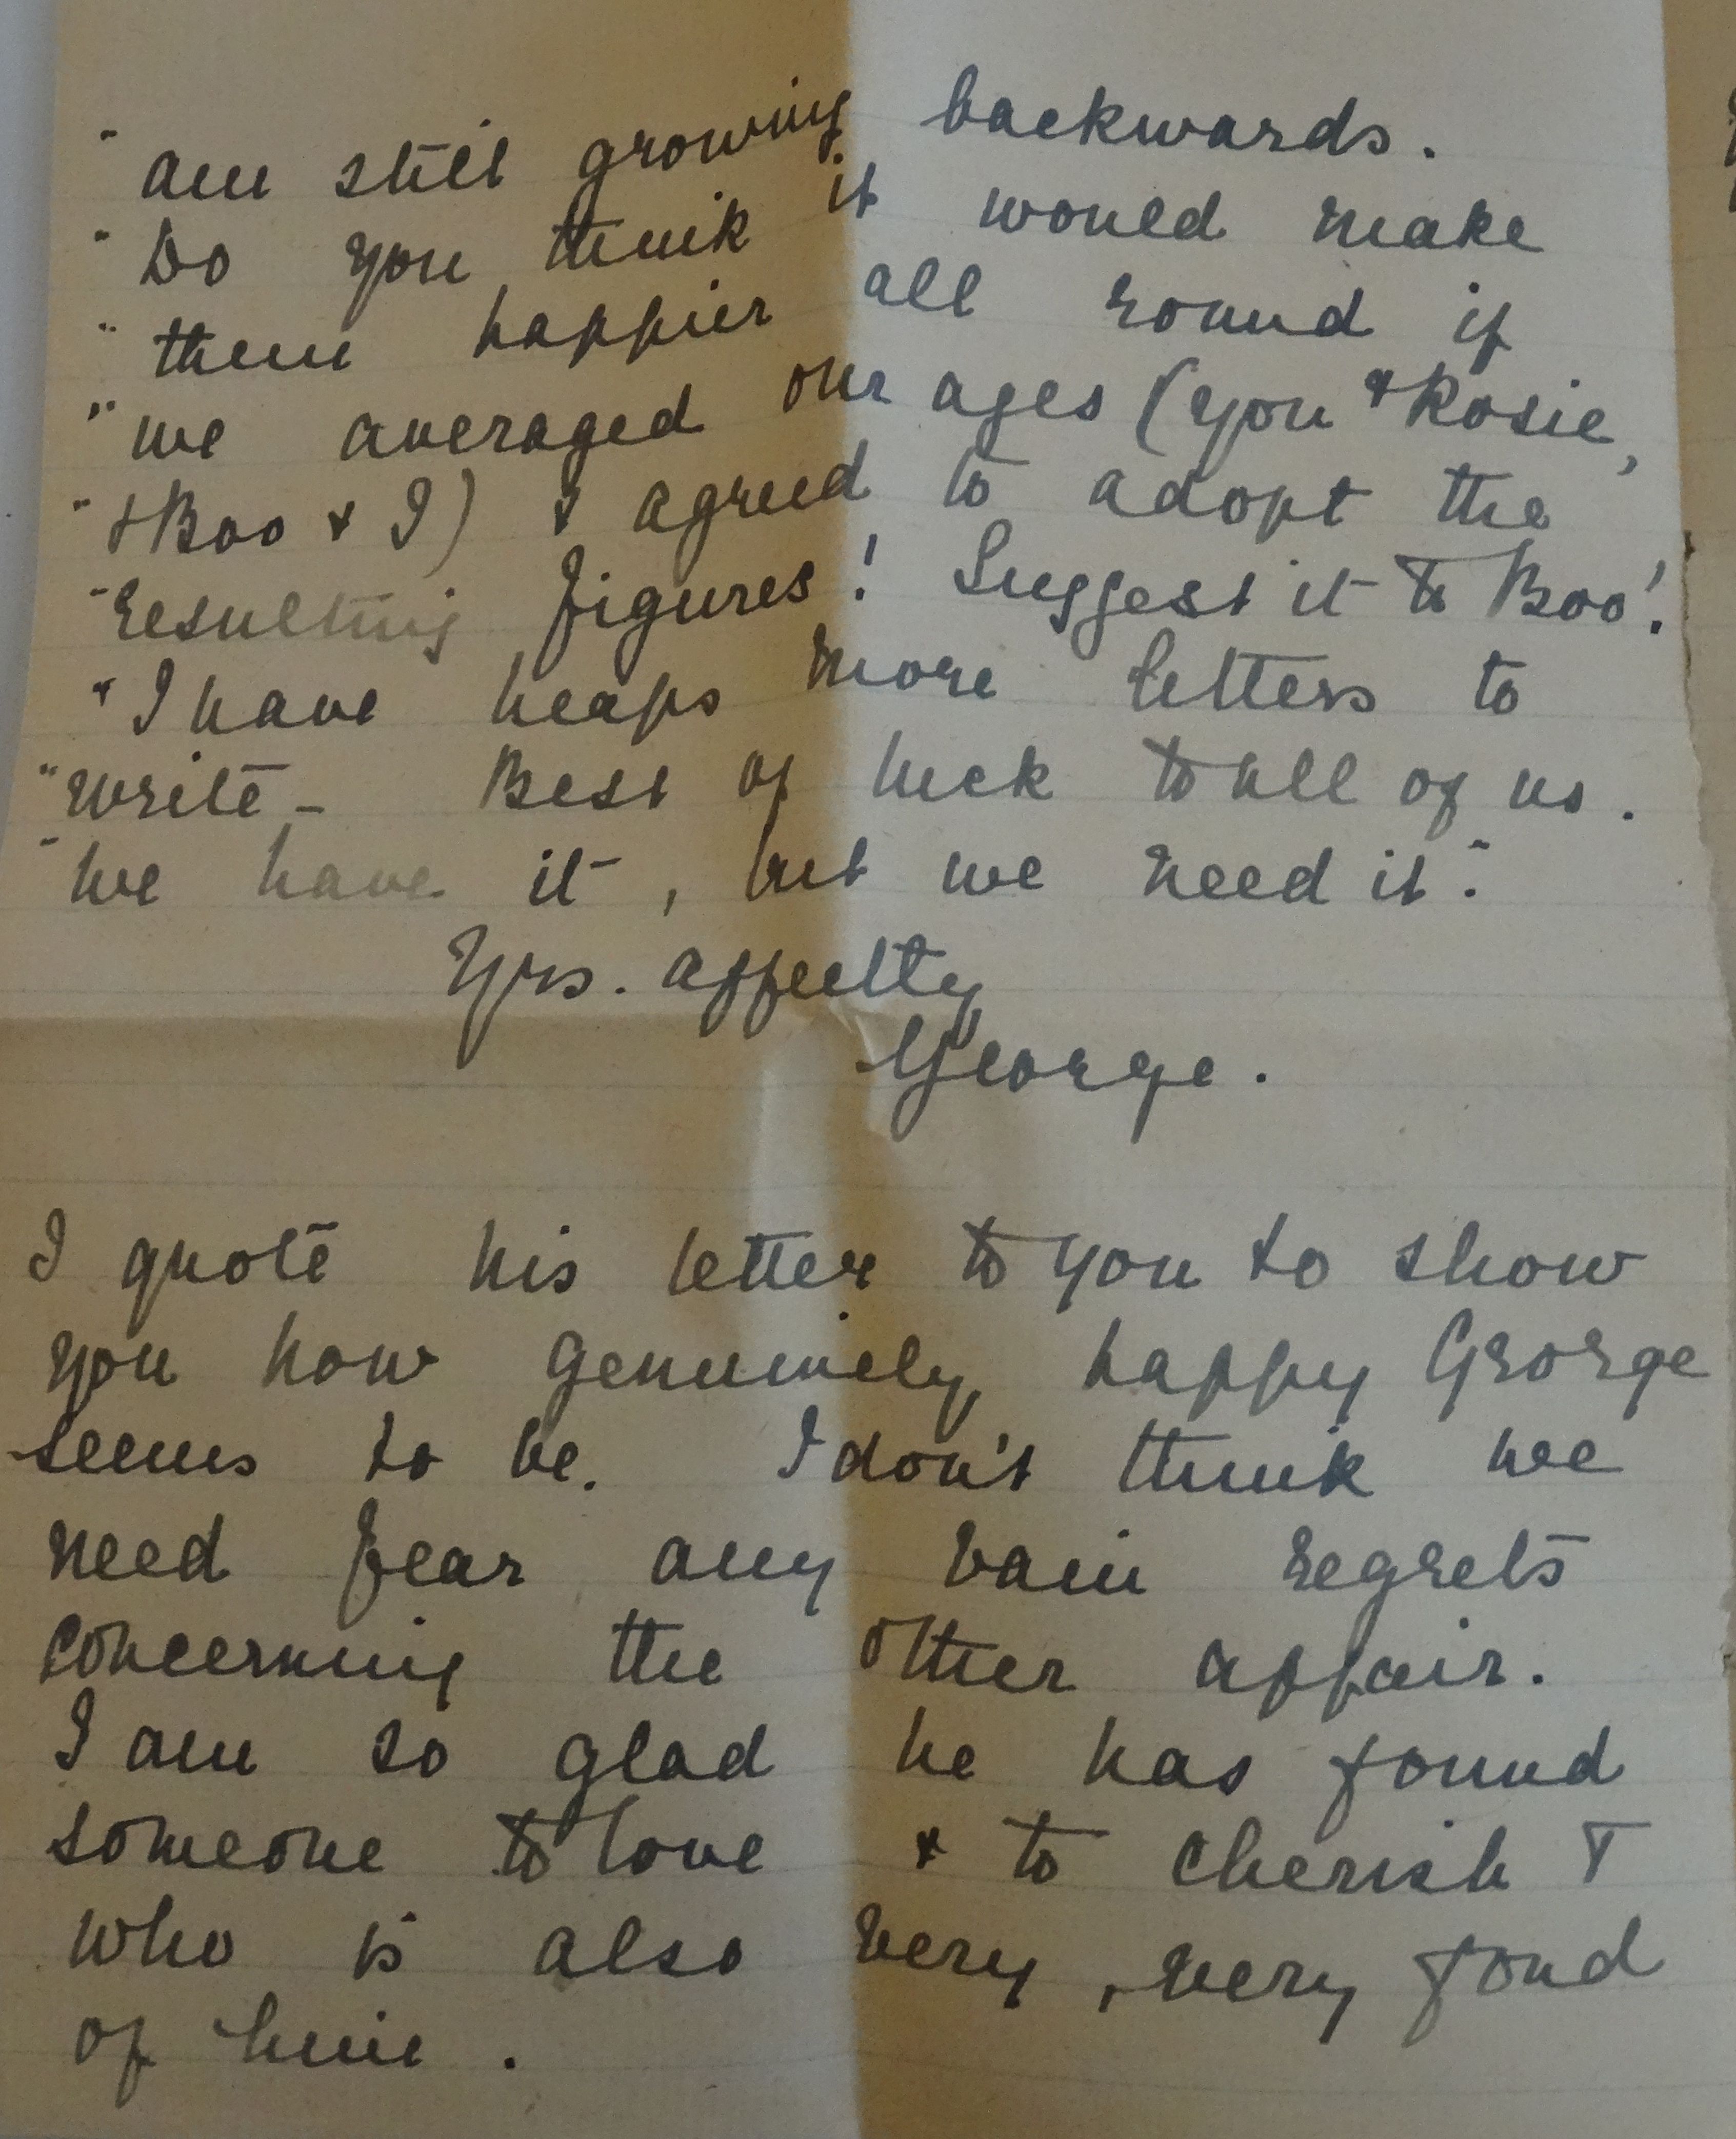 " am still growing backwards.
" Do you think it would make
" them happier all round if
" we averaged our ages (you & Rosie,
" & Boo & I) & agreed to adopt the
" resulting figures! Suggest it to Boo!
" I have heaps more letters to
" write – Best of luck to all of us.
" We have it, but we need it."
Yrs. affectly
George.
I quote his letter to you to show
you how genuinely happy George
seems to be. I don't think we
need fear any vain regrets
concerning the other affair.
I am so glad he has found
someone to love & to cherish &
who is also very, very fond
of him.